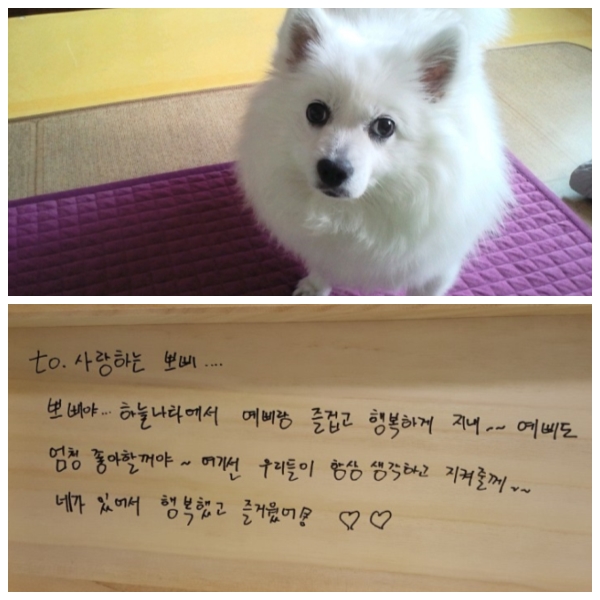 to. 사랑하는 뽀삐....
뽀삐야... 하늘나라에서 예삐랑 즐겁고 행복하게 지내~~ 예삐도
엄청 좋아할꺼야~ 여기선 우리들이 항상 생각하고 지켜줄께~~
네가 있어서 행복했고 즐거웠어! ♡♡